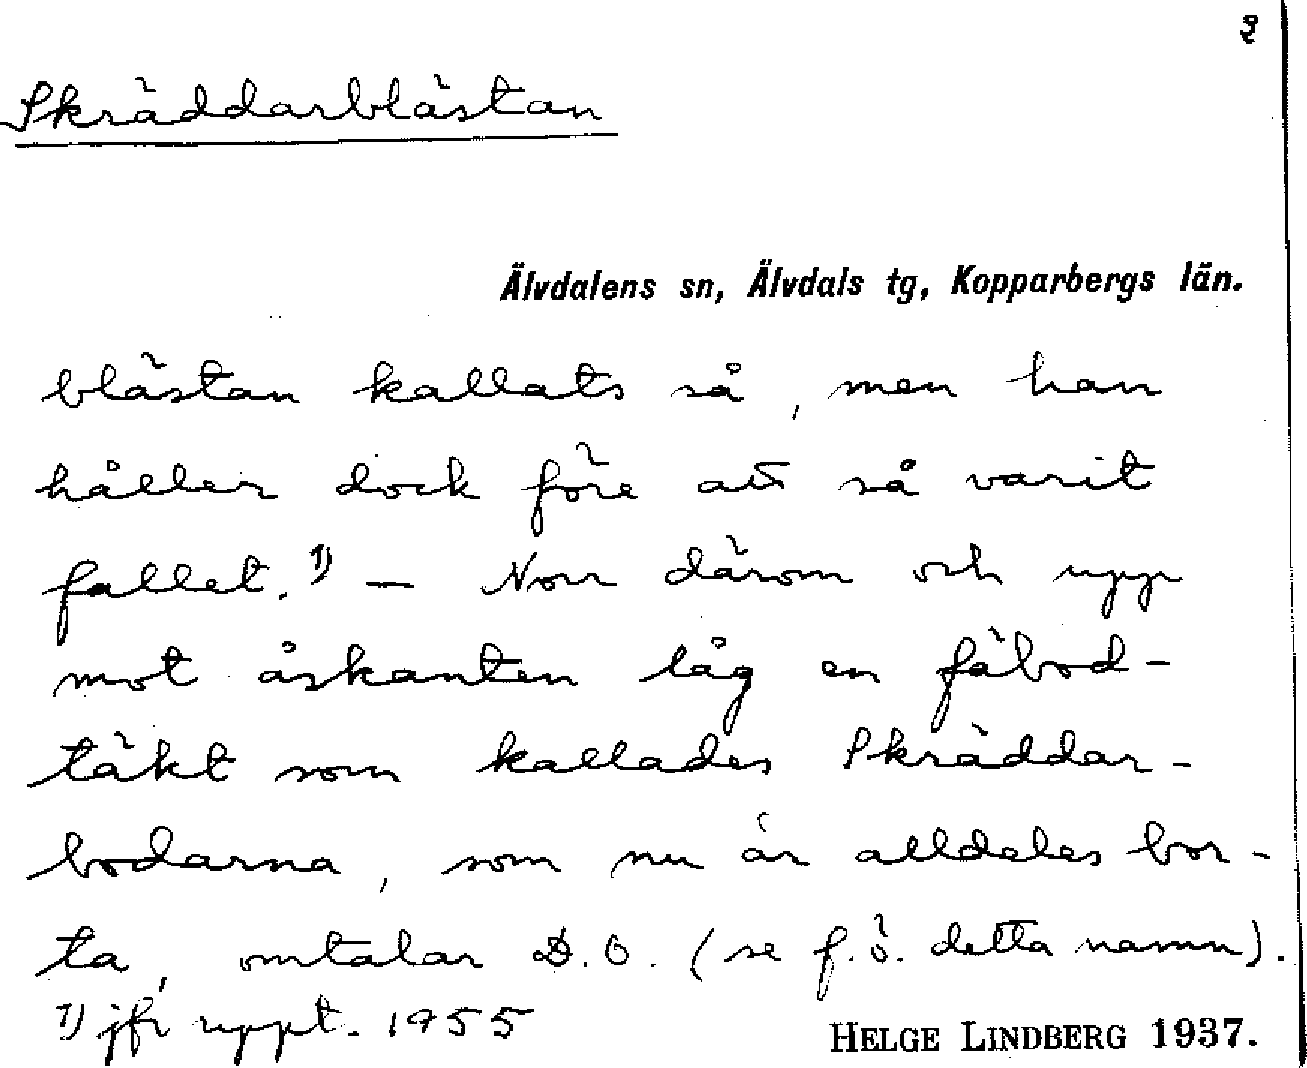 2
Skräddarblästan
Älvdalens sn, Älvdals tg, Kopparbergs län.
blästan kallats så, men han
håller dock före att så varit
fallet.¹⁾ – Norr därom och upp
mot åskanten låg en fäbod-
täkt som kallades Skräddar-
bodarna, som nu är alldeles bor-
ta, omtalar D.O. (se f.ö. detta namn).
¹⁾ jfr uppt. 1955
HELGE LINDBERG 1937.